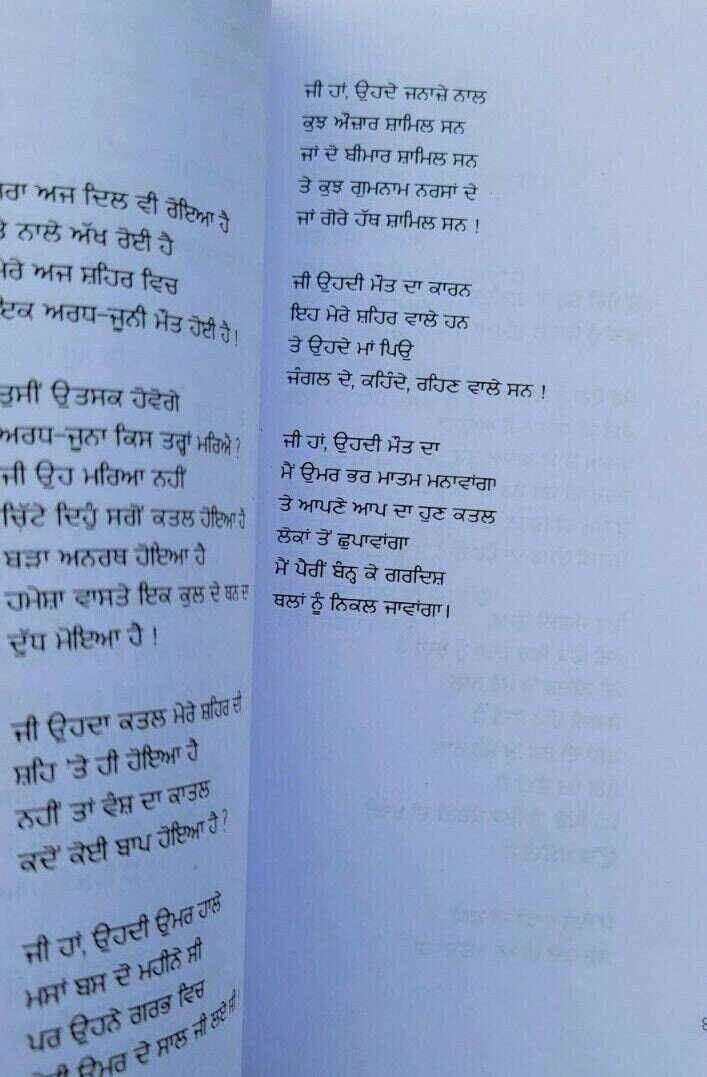 ਅਜ ਦਿਲ ਵੀ ਰੋਇਆ ਹੈ
ਨਾਲੇ ਅੱਖ ਰੋਈ ਹੈ
ਅਜ ਸ਼ਹਿਰ ਵਿਚ
ਇਕ ਅਰਧ-ਜੂਨੀ ਮੌਤ ਹੋਈ ਹੈ!
ਤੁਸੀਂ ਉਤਸਕ ਹੋਵੋਗੇ
ਅਰਧ-ਜੂਨਾ ਕਿਸ ਤਰ੍ਹਾਂ ਮਰਿਐ?
ਜੀ ਉਹ ਮਰਿਆ ਨਹੀਂ
ਚਿੱਟੇ ਦਿਹੁੰ ਸਗੋਂ ਕਤਲ ਹੋਇਆ ਹੈ
ਬੜਾ ਅਨਰਥ ਹੋਇਆ ਹੈ
ਹਮੇਸ਼ਾ ਵਾਸਤੇ ਇਕ ਕੁਲ ਦੇ ਥਨ ਦਾ
ਦੁੱਧ ਮੋਇਆ ਹੈ !
ਜੀ ਉਹਦਾ ਕਤਲ ਮੇਰੇ ਸ਼ਹਿਰ ਦੀ
ਸ਼ਹਿ 'ਤੇ ਹੀ ਹੋਇਆ ਹੈ
ਨਹੀਂ ਤਾਂ ਵੰਸ਼ ਦਾ ਕਾਤਲ
ਕਦੋਂ ਕੋਈ ਬਾਪ ਹੋਇਆ ਹੈ?
ਜੀ ਹਾਂ, ਉਹਦੀ ਉਮਰ ਹਾਲੇ
ਮਸਾਂ ਬਸ ਦੋ ਮਹੀਨੇ ਸੀ
ਪਰ ਉਹਨੇ ਗਰਭ ਵਿਚ
ਉਮਰ ਦੇ ਸਾਲ ਜੀ ਲਏ ਸੀ!
ਜੀ ਹਾਂ, ਉਹਦੇ ਜਨਾਜ਼ੇ ਨਾਲ
ਕੁਝ ਔਜ਼ਾਰ ਸ਼ਾਮਿਲ ਸਨ
ਜਾਂ ਦੋ ਬੀਮਾਰ ਸ਼ਾਮਿਲ ਸਨ
ਤੇ ਕੁਝ ਗੁਮਨਾਮ ਨਰਸਾਂ ਦੇ
ਜਾਂ ਗੋਰੇ ਹੱਥ ਸ਼ਾਮਿਲ ਸਨ !
ਜੀ ਉਹਦੀ ਮੌਤ ਦਾ ਕਾਰਨ
ਇਹ ਮੇਰੇ ਸ਼ਹਿਰ ਵਾਲੇ ਹਨ
ਤੇ ਉਹਦੇ ਮਾਂ ਪਿਉ
ਜੰਗਲ ਦੇ, ਕਹਿੰਦੇ, ਰਹਿਣ ਵਾਲੇ ਸਨ !
ਜੀ ਹਾਂ, ਉਹਦੀ ਮੌਤ ਦਾ
ਮੈਂ ਉਮਰ ਭਰ ਮਾਤਮ ਮਨਾਵਾਂਗਾ
ਤੇ ਆਪਣੇ ਆਪ ਦਾ ਹੁਣ ਕਤਲ
ਲੋਕਾਂ ਤੋਂ ਛੁਪਾਵਾਂਗਾ
ਮੈਂ ਪੈਰੀਂ ਬੰਨ੍ਹ ਕੇ ਗਰਦਿਸ਼
ਥਲਾਂ ਨੂੰ ਨਿਕਲ ਜਾਵਾਂਗਾ।